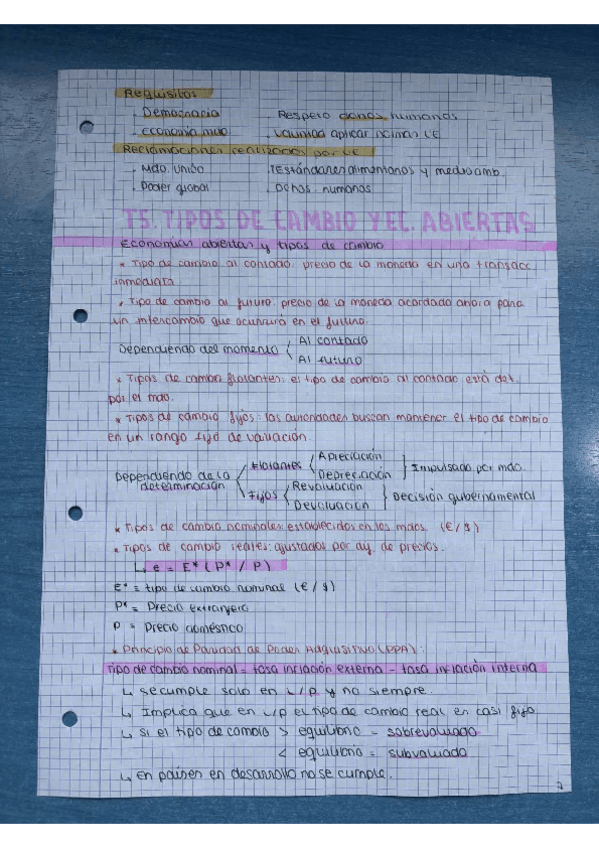 Requisitos
. Democracia . Respeto dchos. humanos
. economía mdo . Voluntad aplicar normas UE
Reclamaciones realizadas por UE
. Mdo. Unido . Estándares alimentarios y medio amb.
. Poder global . Dchos humanos
T5. TIPOS DE CAMBIO Y EC. ABIERTAS
Economías abiertas y tipos de cambio
* Tipo de cambio al contado: precio de la moneda en una transacc.
inmediata
* Tipo de cambio al futuro: precio de la moneda acordada ahora para
un intercambio que ocurrirá en el futuro.
Dependiendo del momento Al contado
Al futuro
* Tipos de cambio flotantes: el tipo de cambio al contado está det.
por el mdo.
* Tipos de cambio fijos: las autoridades buscan mantener el tipo de cambio
en un rango fijo de variación.
Dependiendo de la determinación flotantes Apreciación Depreciación Impulsado por mdo.
Fijos Revaluación Devaluación Decisión gubernamental
* Tipos de cambio nominales: establecidos en los mdos. (€/$)
* Tipos de cambio reales: ajustados por dif. de precios.
↳ e = E* (P* / P)
e* = tipo de cambio nominal (€/$)
P* = Precio extranjero
P = Precio doméstico
* Principio de Paridad de Poder Adquisitivo (PPA):
Tipo de cambio nominal = tasa inflación externa - tasa inflación interna
↳ se cumple solo en L/p y no siempre.
↳ Implica que en L/p el tipo de cambio real en casi fijo
↳ si el tipo de cambio > equilibrio = sobrevaluado
< equilibrio = subvaluado
↳ en países en desarrollo no se cumple.